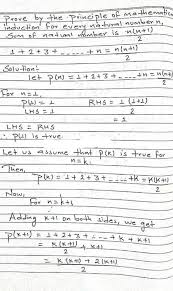 Prove by the principle of mathematical
induction for every natural number n,
Sum of natural number is n(n+1)
2
1 + 2 + 3 + ...... + n = n(n+1)
2
Solution:-
let P(n) = 1 + 2 + 3 + ..... + n = n(n+1)
2
For n = 1,
P(1) = 1 RHS = 1 (1+1)
2
LHS = 1 = 1
LHS = RHS
∴ P(1) is true
Let us assume that P(k) is true for
n = k.
Then,
P(k) = 1 + 2 + 3 + .... + k = k(k+1)
2
Now,
For n = k+1
Adding k+1 on both sides, we get
P(k+1) = 1 + 2 + 3 + ... + k + k+1
= k(k+1) + k+1
2
= k(k+1) + 2(k+1)
2